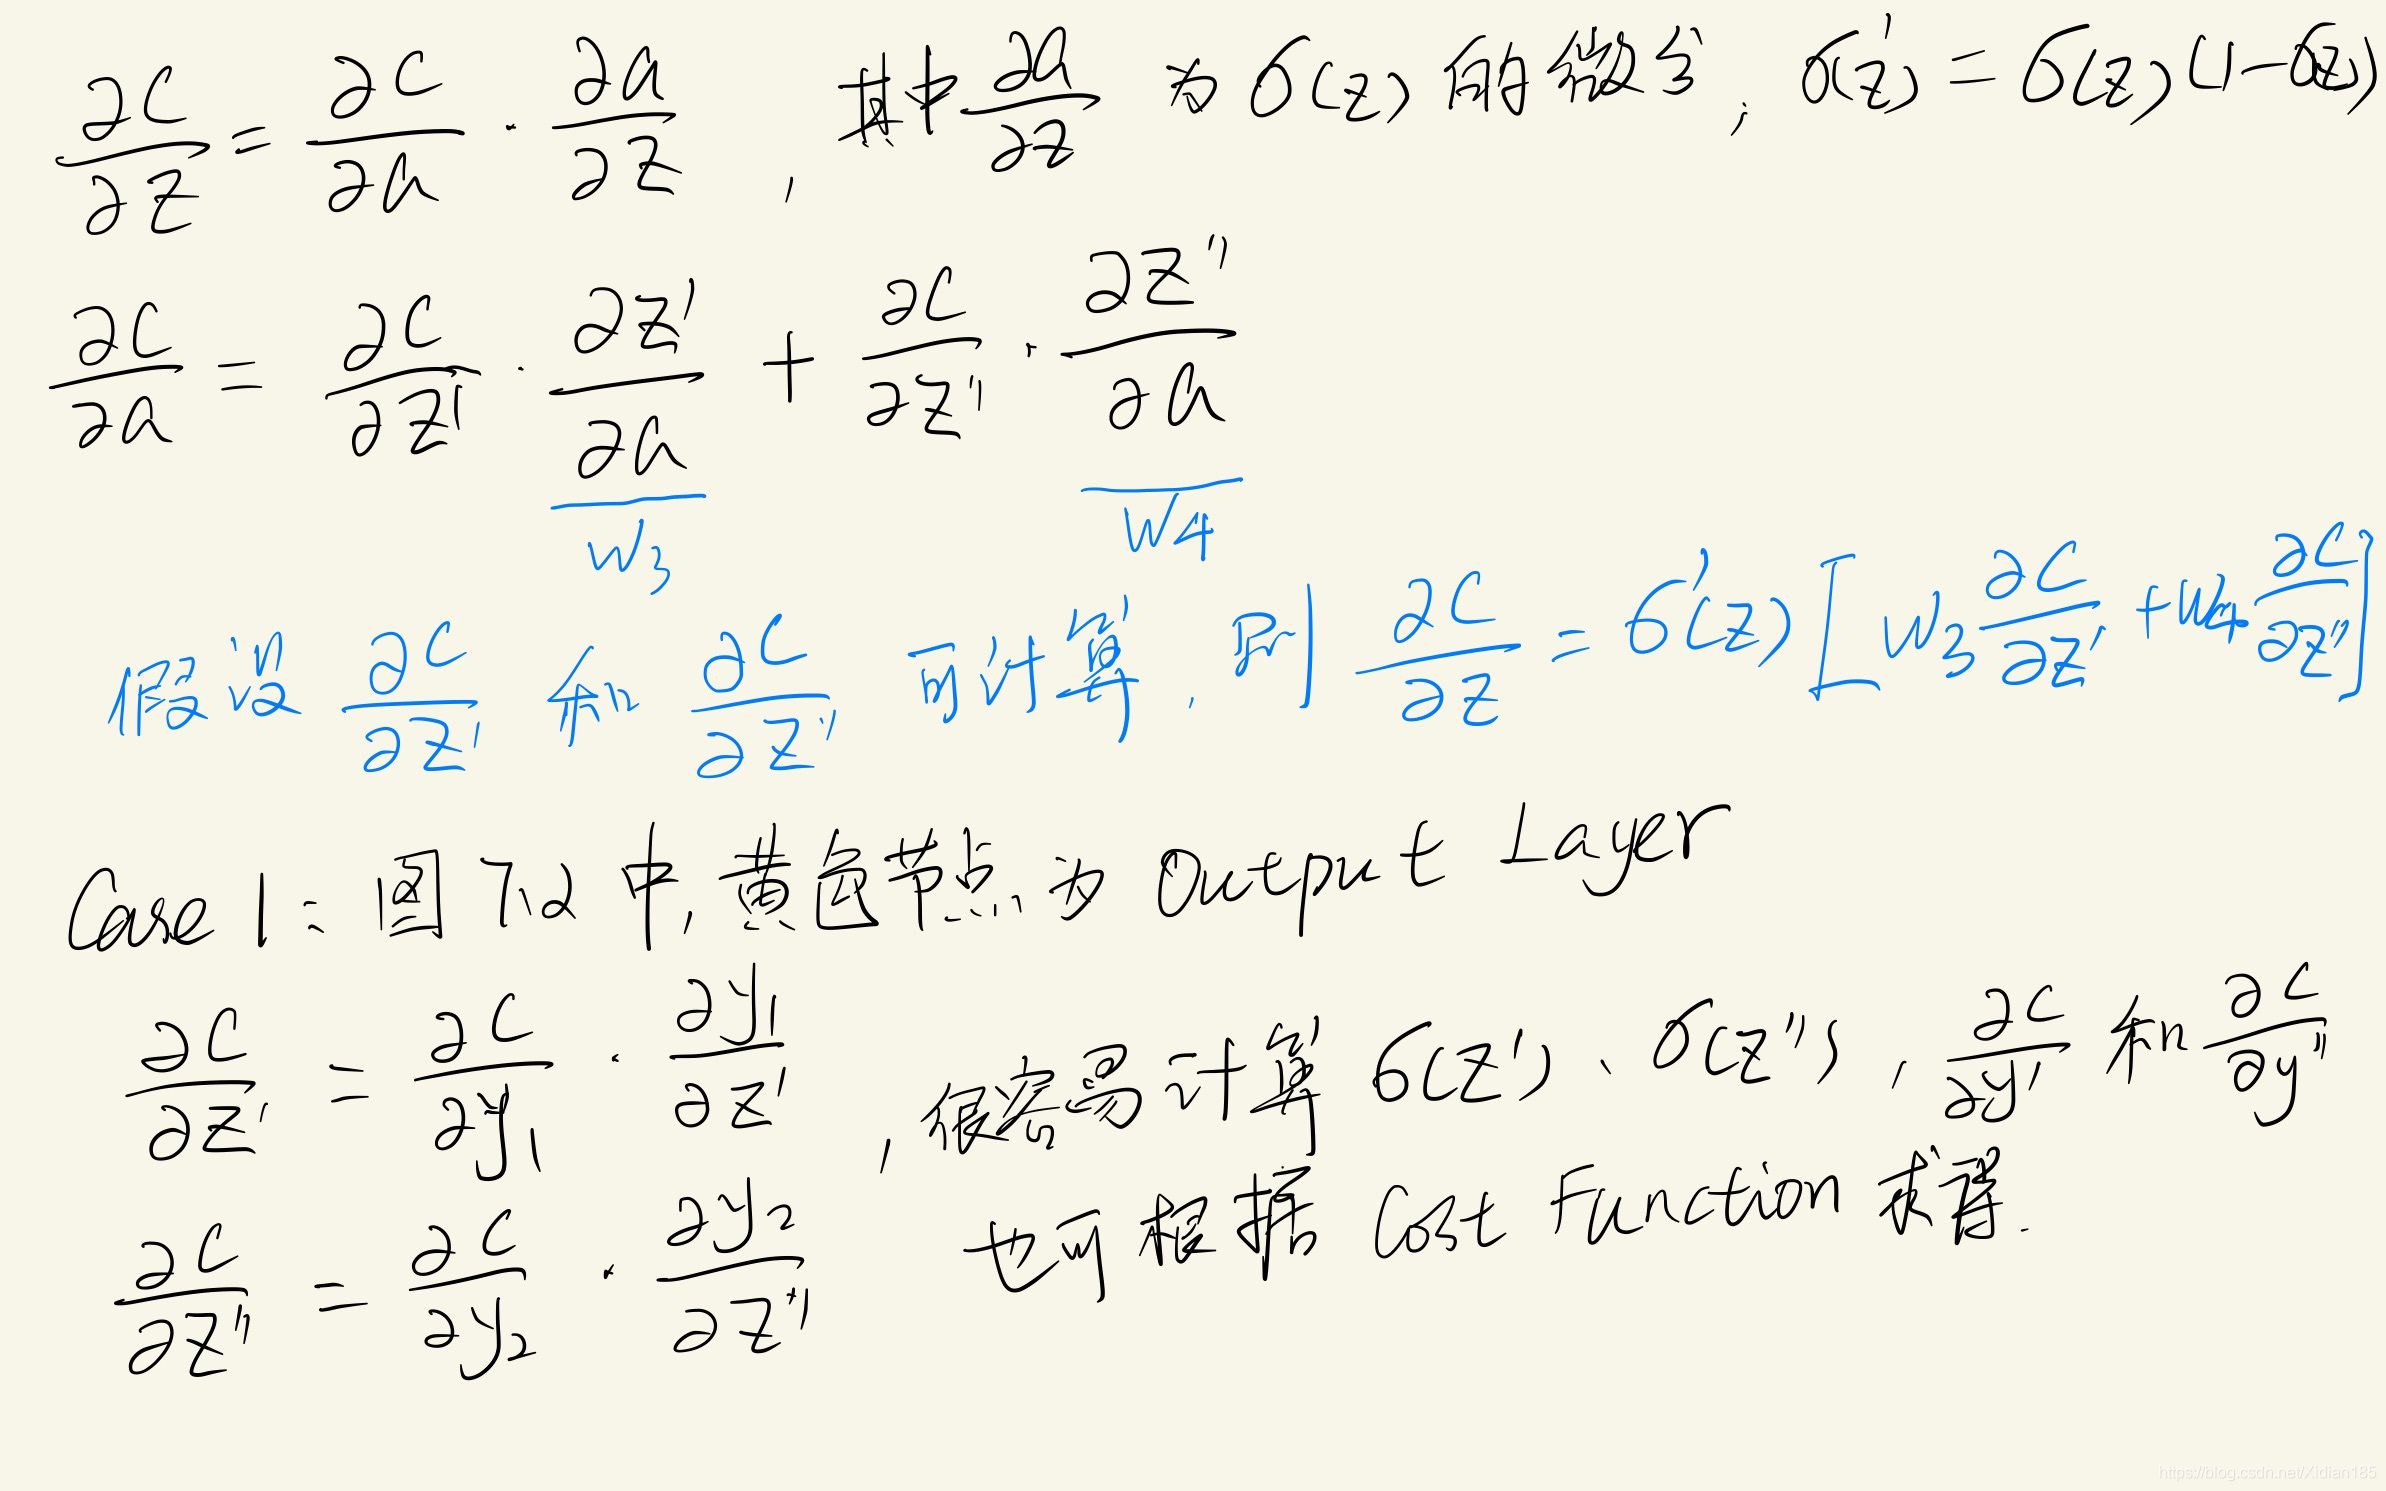 ∂C/∂z = ∂C/∂a · ∂a/∂z , 其中 ∂a/∂z 为 σ(z) 的微分; σ'(z) = σ(z)(1-σ(z))
∂C/∂a = ∂C/∂z' · ∂z'/∂a + ∂C/∂z'' · ∂z''/∂a
w3 w4
假设 ∂C/∂z' 和 ∂C/∂z'' 可计算, 则 ∂C/∂z = σ'(z)[w3 ∂C/∂z' + w4 ∂C/∂z'']
Case 1: 图7.2中, 黄色节点为 Output Layer
∂C/∂z' = ∂C/∂y1 · ∂y1/∂z' , 很容易计算 σ(z')、σ(z''), ∂C/∂y' 和 ∂C/∂y''
∂C/∂z'' = ∂C/∂y2 · ∂y2/∂z'' 也可根据 Cost Function 求得.
https://blog.csdn.net/Xidian185